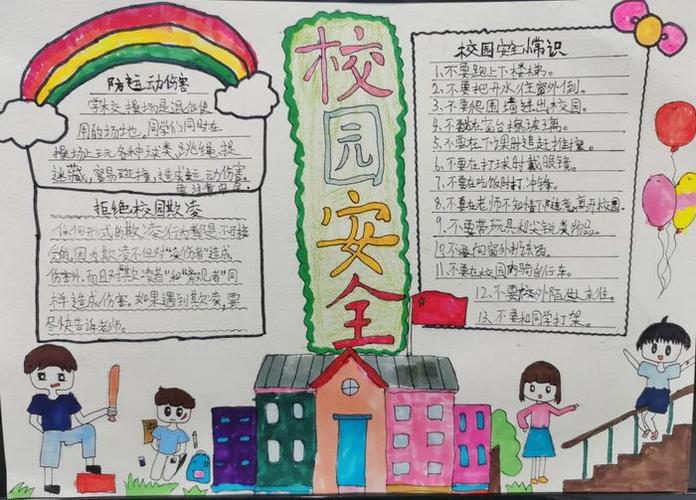 校园安全
防运动伤害
学校操场是混在使
用的场地,同学们同时在
操场上玩各种球类、跳绳、捉
迷藏,容易碰撞,造成运动伤害。
拒绝校园欺凌
任何形式的欺凌行为都是不可接
受的,因为欺凌不但对“受伤者”造成
伤害外,而且对“欺凌者”和“旁观者”同
样造成伤害。如果遇到欺凌,要
尽快告诉老师。
校园安全小常识
1、不要跑上下楼梯。
2、不要把开水往窗外倒。
3、不要爬围墙进出校园。
4、不踏在窗台擦玻璃。
5、不要在下课时追赶推搡。
6、不要在打球时戴眼镜。
7、不要在吃饭时打冲锋。
8、不要在老师不知情下随意离开校园。
9、不要带玩具和尖锐废物品。
10、不要向窗外扔东西。
11、不要在校园内骑自行车。
12、不要校外陌生人来住。
13、不要和同学打架。